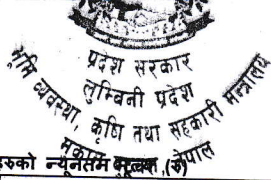 प्रदेश सरकार
लुम्बिनी प्रदेश
भूमि व्यवस्था, कृषि तथा सहकारी मन्त्रालय
नेपाल
हरुको न्यूनतम (रु)